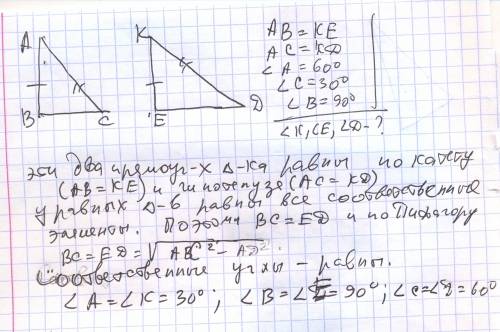 A
B
C
K
E
D
AB = KE
AC = KD
∠A = 60°
∠C = 30°
∠B = 90°
∠K, ∠E, ∠D - ?
Эти два прямоуг-х Δ-ка равны по катету
(AB = KE) и гипотенузе (AC = KD)
У равных Δ-в равны все соответственные
элементы. Поэтому BC = ED и по Пифагору
BC = ED = √
Соответственные углы – равны.
∠A = ∠K = 30°; ∠B = ∠E = 90°; ∠C = ∠D = 60°